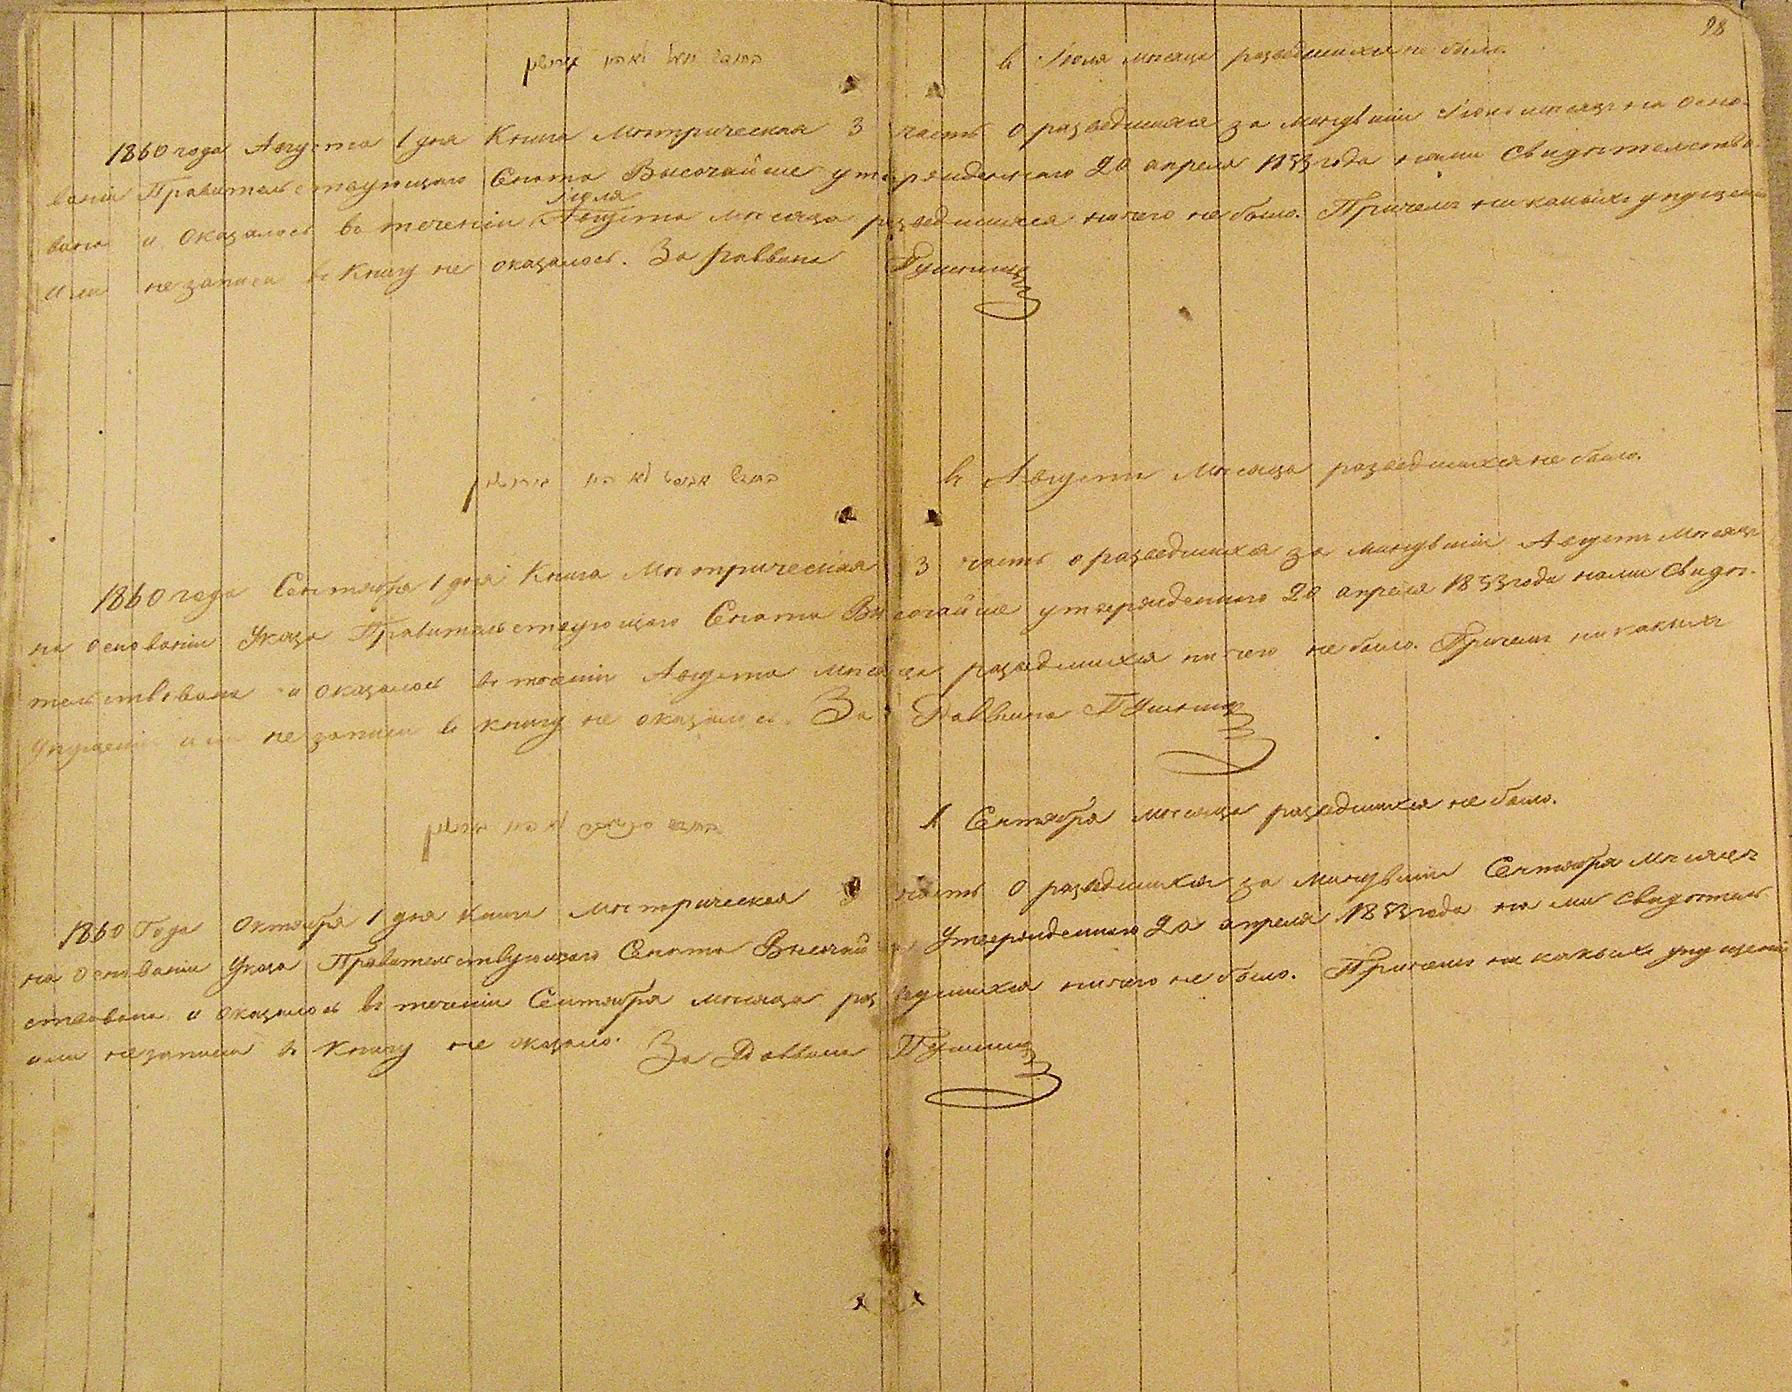 98
в Іюля месяца разведшихся не было.
1860 года Августа 1 дня Книга Метрическая 3 часть о разведшихся за минувший Іюль месяцъ на осно-
ваніи Правительствующаго Сената Высочайше утвержденнаго 20 апреля 1853 года нами свидетельство-
вана и оказалось въ теченіи Іюля Августа месяца разведшихся ничего не было. Причемъ ни какихъ упущеній
или незаписи в книгу не оказалось. За раввина
в Августе месяца разведшихся не было.
1860 года Сентября 1 дня Книга Метрическая 3 часть о разведшихся за минувший Августъ месяцъ
на основаніи Указа Правительствующаго Сената Высочайше утвержденнаго 20 апреля 1853 года нами свидѣ-
тельствована и оказалось въ теченіи Августа месяца разведшихся ничего не было. Причемъ ни какихъ
упущеній или незаписи в книгу не оказалось. За Раввина
в Сентября месяца разведшихся не было.
1860 Года Октября 1 дня Книга Метрическая 3 часть о разведшихся за минувший Сентября месяцъ
на основаніи Указа Правительствующаго Сената Высочайше Утвержденнаго 20 апреля 1853 года нами свидетель-
ствована и оказалось въ теченіи Сентября месяца разведшихся ничего не было. Причемъ ни какихъ упущеній
или незаписи в книгу не оказало. За Раввина